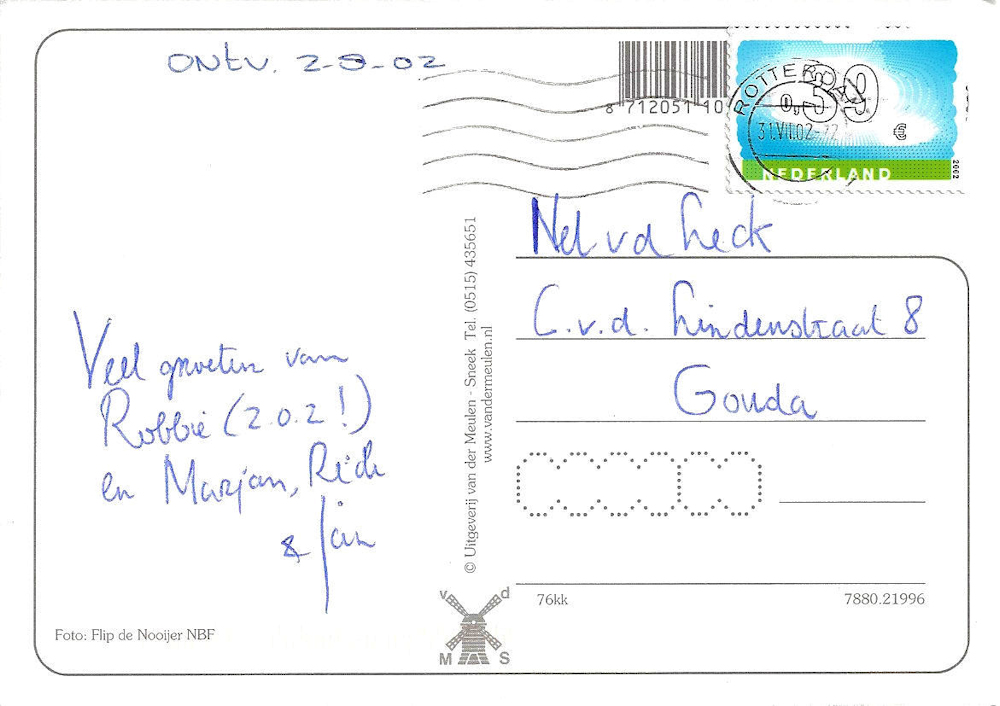 ontv. 2-8-02
8 712051 10
ROTTERDAM
31.VII.02-22
0,39
€
NEDERLAND
2002
Nel v d Leck
C.v.d. Lindenstraat 8
Gouda
Veel groeten van
Robbie (2.0.2!)
en Marjan, Rick
& Jan
© Uitgeverij van der Meulen - Sneek Tel. (0515) 435651
www.vandermeulen.nl
76kk
7880.21996
Foto: Flip de Nooijer NBF
v d
M S